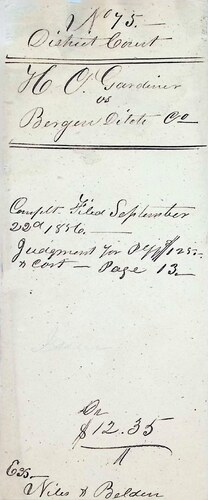 No 75.
District Court
H. O. Gardiner
vs
Bergen Ditch Co
Complt. Filed September
22d 1856.
Judgment for Plff $125.
& Cost - Page 13
$12.35
Niles & Belden